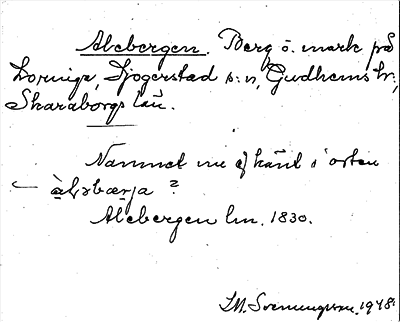 Alebergen. Berg o. mark på
Lovinge, Sjogerstad s:n, Gudhems hr,
Skaraborgs län.
Namnet nu ej känt i orten
– àləbærja ?
Alebergen lm. 1830.
I.M. Svenningsson. 1948.